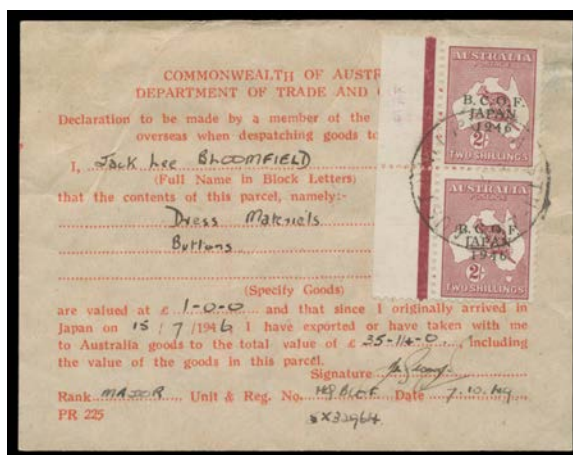 COMMONWEALTH OF AUSTR
DEPARTMENT OF TRADE AND
Declaration to be made by a member of the
overseas when despatching goods to
I, Jack Lee BLOOMFIELD
(Full Name in Block Letters)
that the contents of this parcel, namely:-
Dress Materials
Buttons
(Specify Goods)
are valued at £ 1-0-0 and that since I originally arrived in
Japan on 15/7/1946 I have exported or have taken with me
to Australia goods to the total value of £ 35-14-0, including
the value of the goods in this parcel.
Signature
Rank MAJOR Unit & Reg. No. HQ BCOF Date 7.10.49
PR 225
SX32964
AUSTRALIA
POSTAGE
B.C.O.F.
JAPAN
1946
2/-
TWO SHILLINGS
AUSTRALIA
POSTAGE
B.C.O.F.
JAPAN
1946
2/-
TWO SHILLINGS